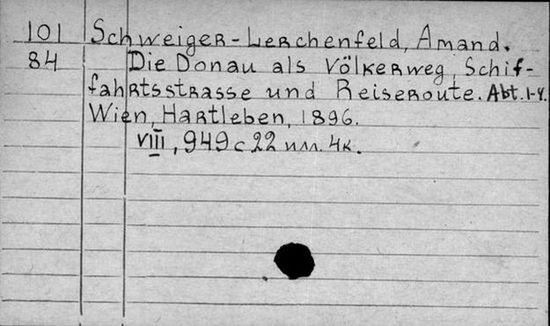 101 Schweiger-Lerchenfeld, Amand.
84 Die Donau als Völkerweg, Schif-
fahrtsstrasse und Reiseroute. Abt. 1-4.
Wien, Hartleben, 1896.
VIII, 949 с 22 илл. 4к.